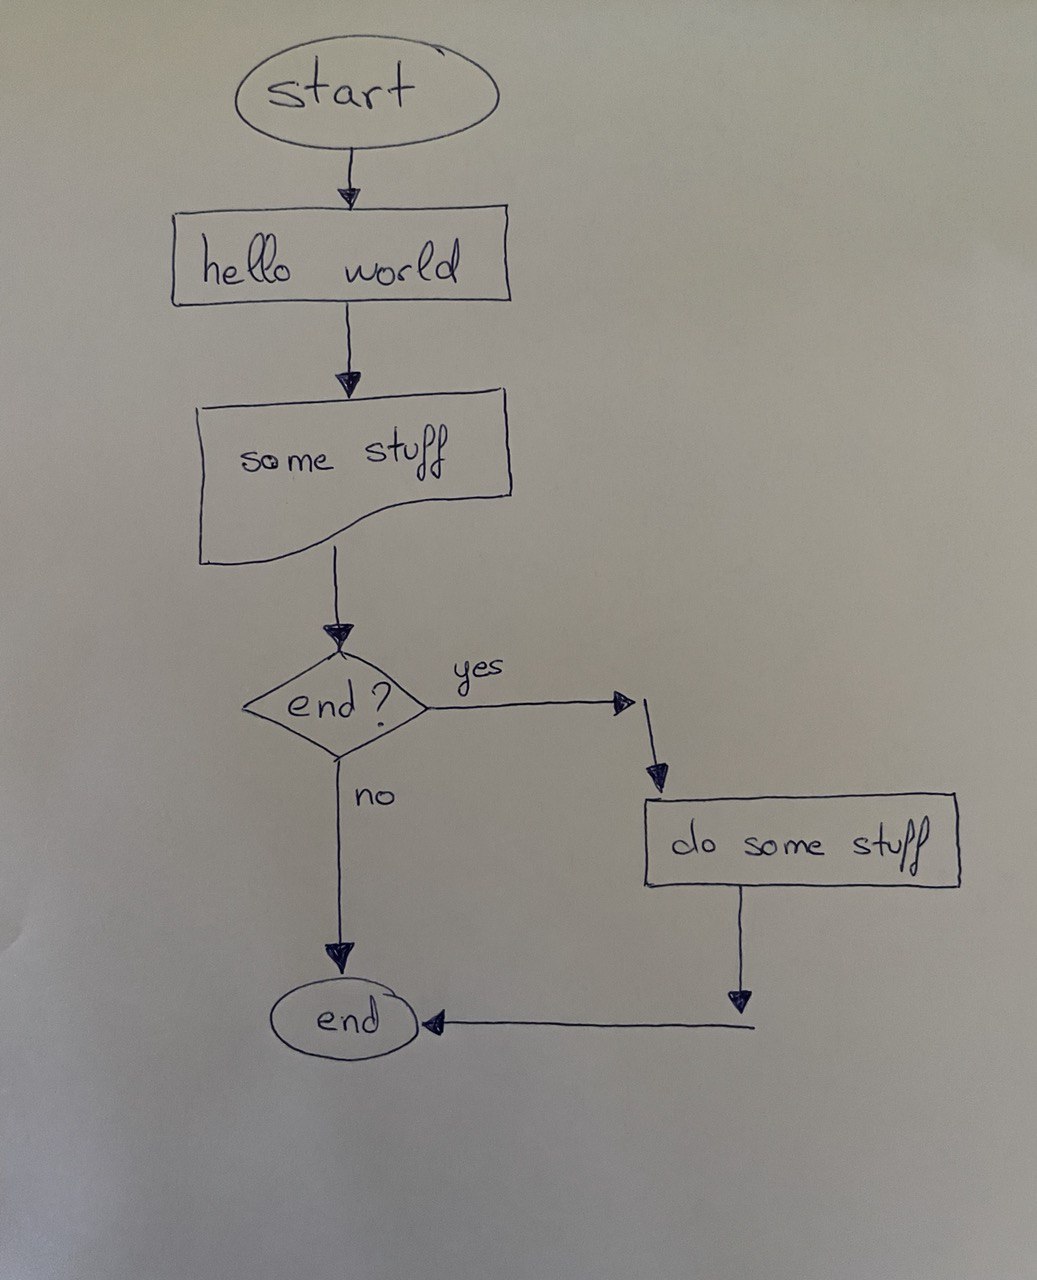 start
hello world
some stuff
end?
yes
no
do some stuff
end